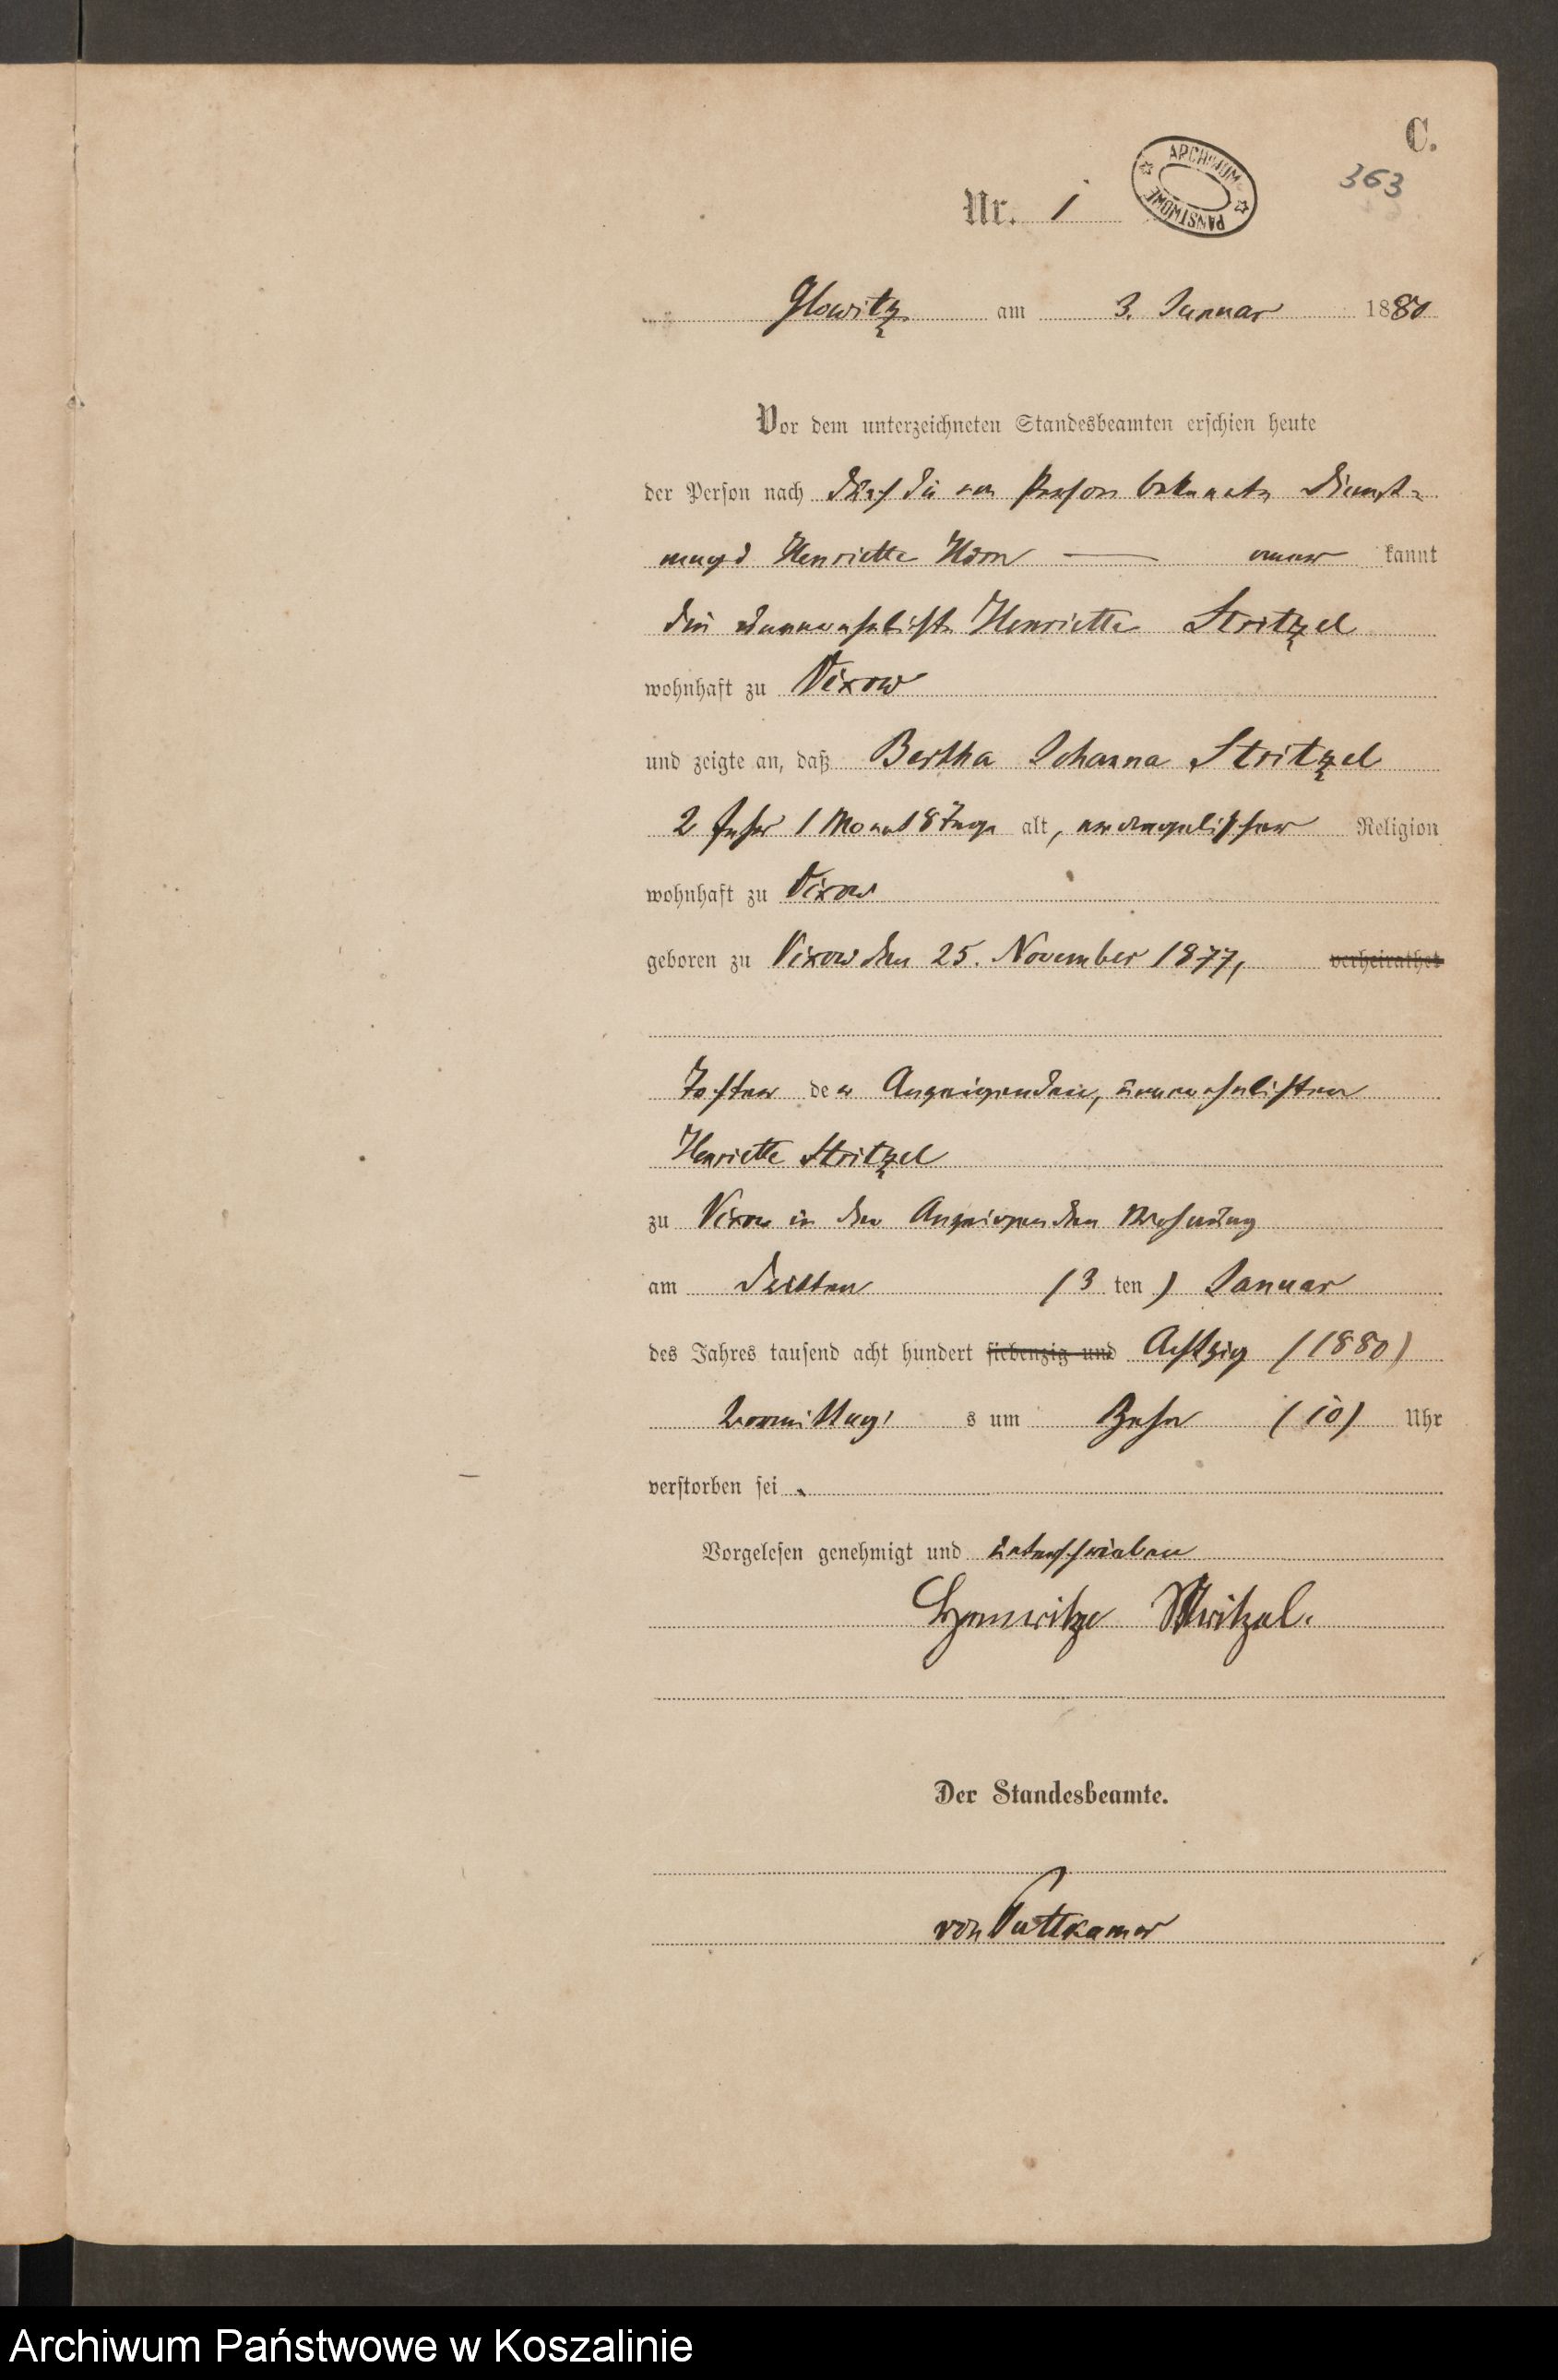 C.
363
Nr. 1
ARCHIWUM PAŃSTWOWE
Glowitz am 3. Januar 1880
Vor dem unterzeichneten Standesbeamten erschien heute
der Person nach durch die von Person bekannte Dienst=
magd Henriette Horn — aner kannt
die unverehelichte Henriette Stritzel
wohnhaft zu Vixow
und zeigte an, daß Bertha Johanna Stritzel
2 Jahr 1 Monat 8 Tage alt, evangelischer Religion
wohnhaft zu Vixow
geboren zu Vixow den 25. November 1877, verheirathet
Tochter der Anzeigenden, unverehelichten
Henriette Stritzel
zu Vixow in der Anzeigenden Wohnung
am dritten (3 ten) Januar
des Jahres tausend acht hundert siebenzig und Achtzig (1880)
Vormittag s um Zehn (10) Uhr
verstorben sei.
Vorgelesen genehmigt und unterschrieben
Stritzel.
Der Standesbeamte.
von Puttkamer
Archiwum Państwowe w Koszalinie